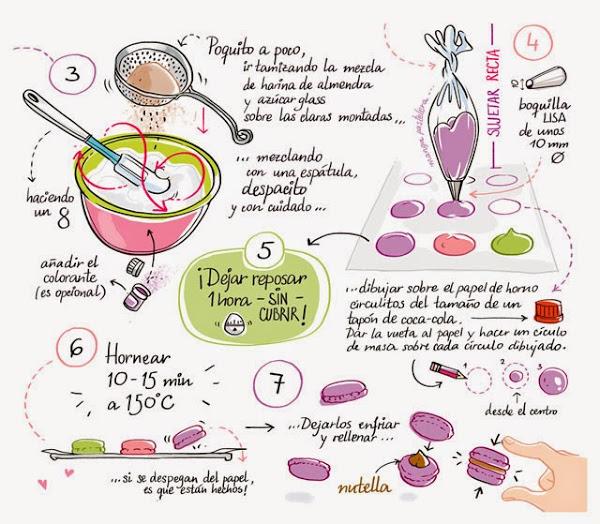 3
Poquito a poco,
ir tamizando la mezcla
de harina de almendra
y azúcar glass
sobre las claras montadas...
... mezclando
con una espátula,
despacito
y con cuidado...
haciendo
un 8
añadir el
colorante
(es opcional)
4
SUJETAR RECTA
manga pastelera
boquilla
LISA
de unos
10 mm
Ø
...dibujar sobre el papel de horno
circulitos del tamaño de un
tapón de coca-cola.
Dar la vuelta al papel y hacer un círculo
de masa sobre cada círculo dibujado.
1
2
3
desde el centro
5
¡Dejar reposar
1 hora - SIN -
CUBRIR!
6
Hornear
10-15 min
a 150°C
...si se despegan del papel,
es que están hechos!
7
...Dejarlos enfriar
y rellenar...
nutella